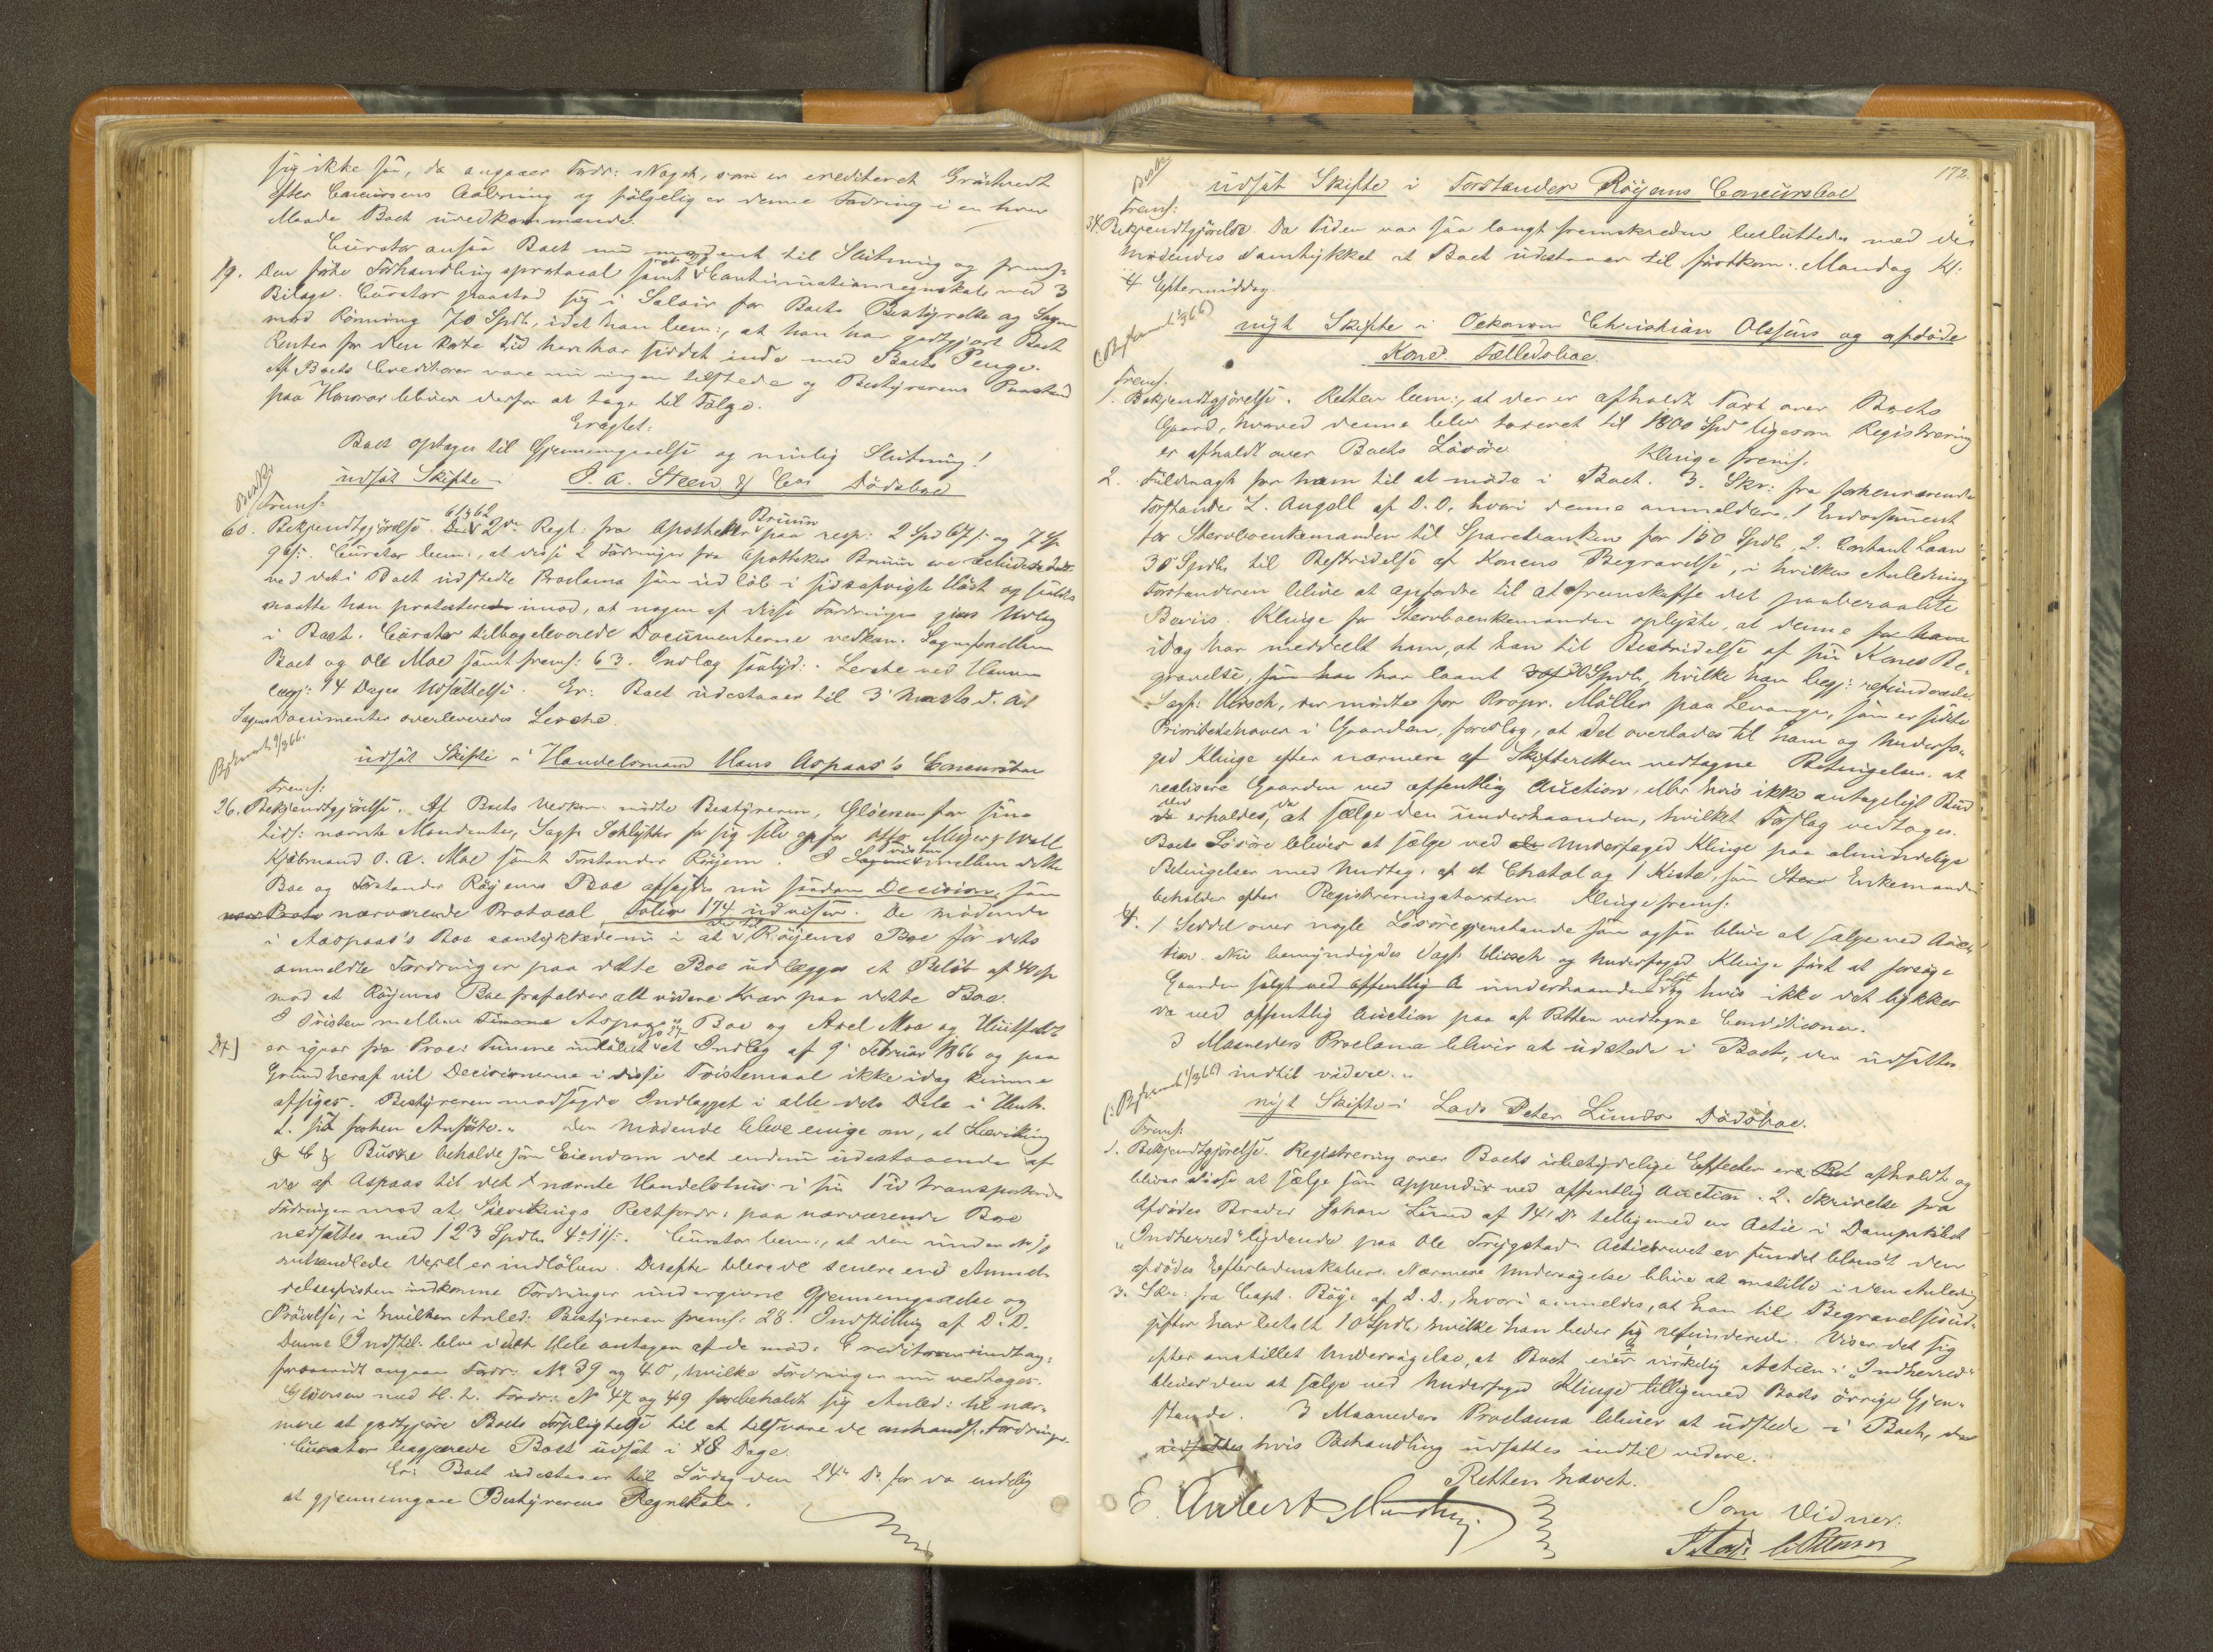 sig ikke saa, da angaaer Fordr: Noget, som er crediteret Gröstvedt
efter Concursens Aabning og fölgelig er denne Fordring i en hver
Maade Boet uvedkommende.
Curator ansaa Boet nu modent til Slutning og frems:
19. Den förte Forhandlingsprotocol samt Continuationsregnskab med 3
Bilage. Curator paastod sig i Salair for Boets Bestyrelse og Sagen
mod Rönning 70 Spdl, idet han bem:, at han har godtgjort Boet
Renter for den korte Tid han har siddet inde med Boets Penge.
Af Boets Creditorer vare nu ingen tilstede og Bestyrerens Paastand
paa Honorar bliver derfor at tage til Fölge.
Eragtet:
Boet optages til Gjennemgaaelse og mulig Slutning!
udsat Skifte i J. A. Steen & Co's Dödsboe
Frems:
61 & 62
60. Bekjendtgjörelse. 2de Regl. fra Apotheker Bruun paa resp: 2 Spd 67 s: og 7 Sp
96 s:. Curator bem:, at disse 2 Fordringer fra Apotheker Bruun ere
ved det i Boet udstedte Proclama som udlöb i sidstafvigte Höst og
maatte han protestere imod, at nogen af disse Fordringer gives Udlæg
i Boet. Curator tilbageleverede Documenterne vedkom. Sagen mellem
Boet og Ole Moe samt frems: 63. Indlæg saalyd: Lerche ved
begj: 14 Dages Udsættelse. Er: Boet udestaaer til 3' Marts d. A!
Sagens Documenter overleveredes Lerche.
udsat Skifte i Handelsmand Hans Aspaas's Concursboe
Frems:
26. Bekjendtgjörelse. Af Boets Vedkom. mödte Bestyreren, Glöersen for sine
tids: nævnte Mandanter, Sagf. Schlytter for sig selv og for Otto Meyer & Wall
Kjöbmand O. A. Moe samt Forstander Röyem. I mellem dette
Boe og Forstander Röyems Boe afsagdes nu saadan Decision, som
nærværende Protocol, Folio 174 udviser. De mödende
i Aaspaas's Boe samtykkede nu i at Röyems Boe for dets
anmeldte Fordringer paa dette Boe udlægges et Belöb af 40 Sp
mod at Röyems Boe frafalder alt videre Krav paa dette Boe.
I Tvisten mellem Aspaas's Boe og Axel Moe og Huitfeldt
27) er igaar fra Proc: Timme indlöbet et Indlæg af 9' Februar 1866 og paa
Grund heraf vil Decisionerne i disse Tvistemaal ikke idag kunne
afsiges. Bestyreren modsagde Indlægget i alle dets Dele i Henh.
t. sit forhen Anförte. De Mödende bleve enige om, at Lieviking
& C & Buske beholde som Eiendom det endnu udestaaende af
de af Aspaas til det nævnte Handelshus i sin Tid transporterede
Fordringer mod at Sievekings Restfordr: paa nærværende Boe
nedsættes med 123 Spdl 4 11 s:. Curator bem:, at den under No 10
omhandlede Vexel er indlöben. Derefter bleve de senere end Anmel-
delsesfristen indkomne Fordringer undergivne Gjennemgaaelse og
Prövelse, i hvilken Anled: Bestyreren frems: 28. Indstilling af D. D.
Denne Indstil: blev i det Hele antagen af de möd: Creditorer undtag:
forsaavidt angaar Fordr: No 39 og 40, hvilke Fordringer nu vedtages.
Glöersen med H. t. Fordr: No 47 og 49 forbeholdt sig Anled: til nær-
mere at godtgjöre Boets Forpligtelse til at tilsvare de omhandl. Fordringer.
Curator begjærede Boet udsat i 8 Dage.
Er: Boet udestaaer til Lördag den 24de ds. for da endelig
at gjennemgaae Bestyrerens Regnskab.
172.
udsat Skifte i Forstander Röyems Concursboe
Frems:
34. Bekjendtgjörelse. Da Tiden var saa langt fremskreden besluttedes med de
Mödendes Samtykke at Boet udestaaer til förstkom. Mandag Kl.
4 Eftermiddag.
nyt Skifte i Oekonom Christian Olssens og afdöde
Kones Fælledsboe.
Frems:
1. Bekjendtgjörelse. Retten bem:, at der er afholdt Taxt over Boets
Gaard, hvorved denne blev taxeret til 1800 Spd ligesom Registrering
er afholdt over Boets Lösöre Klinge frems:
2. Fuldmagt for ham til at möde i Boet. 3. Skr: fra forhenværende
Forstander L. Angell af D. D. hvori denne anmelder 1 Endossement
for Stervboenkemanden til Sparebanken for 150 Spdl, 2. Contant Laan
30 Spdl til Bestridelse af Konens Begravelse, i hvilken Anledning
Forstanderen bliver at opfordre til at fremskaffe det paaberaabte
Beviis. Klinge for Stervboenkemanden oplyste, at denne
idag har meddeelt ham, at han til Bestridelse af sin Kones Be-
gravelse, har laant 30 Spdl, hvilke han begj: refunderede.
Sagf: Hirsch, der mödte for Propr. Möller paa Levanger, som er sidste
Prioritetshaver i Gaarden, foreslog, at det overlades til ham og Underfo-
ged Klinge efter nærmere af Skifteretten vedtagne Betingelser at
realisere Gaarden ved offentlig Auction, eller hvis ikke antageligt Bud
der erholdes, da at sælge den underhaanden, hvilket Forslag vedtoges.
Boets Lösöre bliver at sælge ved Underfoged Klinge paa almindelige
Betingelser med Undtag. af et Chatol og 1 Kiste, som Enkemanden
beholder efter Registreringstaxten. Klinge frems:
4. 1 Seddel over nogle Lösöregjenstande som ogsaa bliver at sælge ved Auc-
tion. Nu bemyndigedes Sagf. Hirsch og Underfoged Klinge först at forsöge
Gaarden solgt underhaanden og hvis ikke det lykkes
da ved offentlig Auction paa af Retten vedtagne Conditioner.
3 Maaneders Proclama bliver at udstede i Boet, der udsættes
indtil videre.
nyt Skifte i Lars Peter Lunds Dödsboe.
Frems:
1. Bekjendtgjörelse. Registrering over Boets ubetydelige Effecter ere afholdt og
bliver disse at sælge som Appendix ved offentlig Auction. 2. Skrivelse fra
Afdödes Broder Johan Lund af 14' ds tilligemed en Actie i Dampskibet
"Indherred" lydende paa Ole Trygstad. Actiebrevet er fundet blandt den
afdödes Efterladenskaber. Nærmere Undersögelse bliver at anstille i den Anledning
3. Skr: fra Capt. Böge af D. D., hvori anmeldes, at han til Begravelsesud-
gifter har betalt 10 Spdl, hvilke han beder sig refunderede. Viser det sig
efter anstillet Undersögelse, at Boet eier virkelig Actien i "Indherred"
bliver den at sælge ved Underfoged Klinge tilligemed Boets övrige Gjen-
stande. 3 Maaneders Proclama bliver at udstede i Boet,
hvis Behandling udsættes indtil videre.
Retten hævet.
Som Vidner.